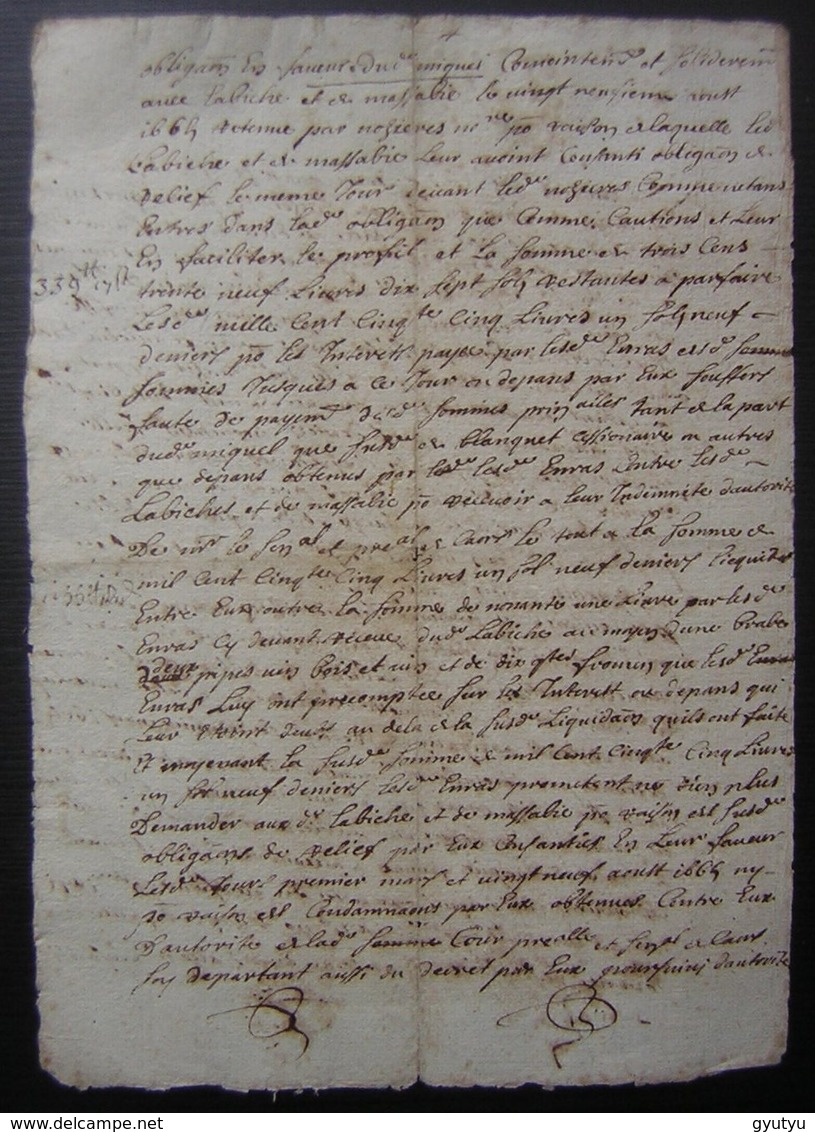 obligaõn En faveur dud^t miquel Conointem^t et soliderem^t
avec Labiche et de massabie le vingt neufiem aoust
166 retenue par nozieres no^re po raison de laquelle les
Labiche et de massabie leur avoint Consanti obligaõn de
relief le meme Jour devant led^t nozieres Comme netans
Entres dans lad^e obligaõn que Comme Cautions et pour
En faciliter le profit et La somme de trois Cens
339^tt 17^s
trente neuf Livres dix sept solz restantes a parfaire
Lesd^es mille Cent Cinq^te Cinq Livres un solz neuf
deniers po les Interets payés par lesd^s Euras desd^es
sommes Jusques a ce Jour ou depans par Eux soufferts
faute de payem^t desd^es sommes prinales tant de la part
dud^t miquel que susd^t de blanquet cessionaire ou autres
que depans obtenus par lesd^s Euras Contre lesd^s
Labiches et de massabie po recevoir a leur Indemnite dautorité
De mr le sen^al et pre^al de Caors le tout a la somme de
mil Cent Cinq^te Cinq Livres un sol neuf deniers liquidés
Entre Eux outre la somme de nonante une livre par lesd^s
Euras Cy devant receue dud^t Labiche au moyen dune brabe
deux pipes vin bois et vin et de dix q^tes fromen que lesd^s
Euras Luy ont precomptée sur les Interets ou depans qui
leur etoint deubs au dela de la susd^e Liquidaõn quils ont faite
Et moyenant la susd^e somme de mil cent cinq^te Cinq Livres
un sol neuf deniers lesd^s Euras prometent ne rien plus
Demander aux d^s Labiche et de massabie po raison des susd^es
obligaõns de relief par Eux Consanties En Leur faveur
Lesd^s Jours premier mars et vingt neuf aoust 166 ny
po raison des Condamnaõns par Eux obtenues Contre Eux
Dautorité de lad^e Cour et sen^al de Caors
soy departant aussi du decret par Eux poursuivy dautorité
gyutyu